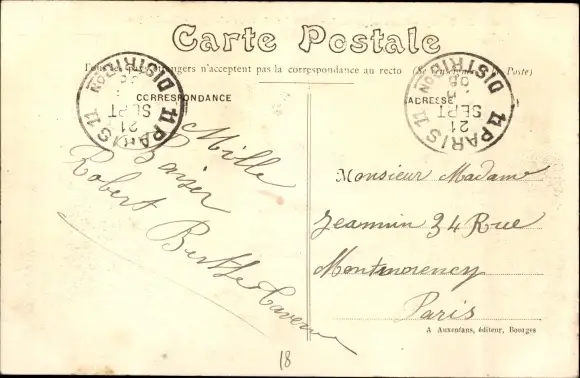 Carte Postale
Tous les pays étrangers n'acceptent pas la correspondance au recto (Se renseigner à la Poste)
CORRESPONDANCE
ADRESSE
PARIS 11 DISTRIBON
21
SEPT
PARIS 11 DISTRIBON
21
SEPT
08
Mille
Baiser
Robert Berthe
Monsieur Madame
Jeannin 34 Rue
Montmorency
Paris
A Auxenfans, éditeur, Bourges
18